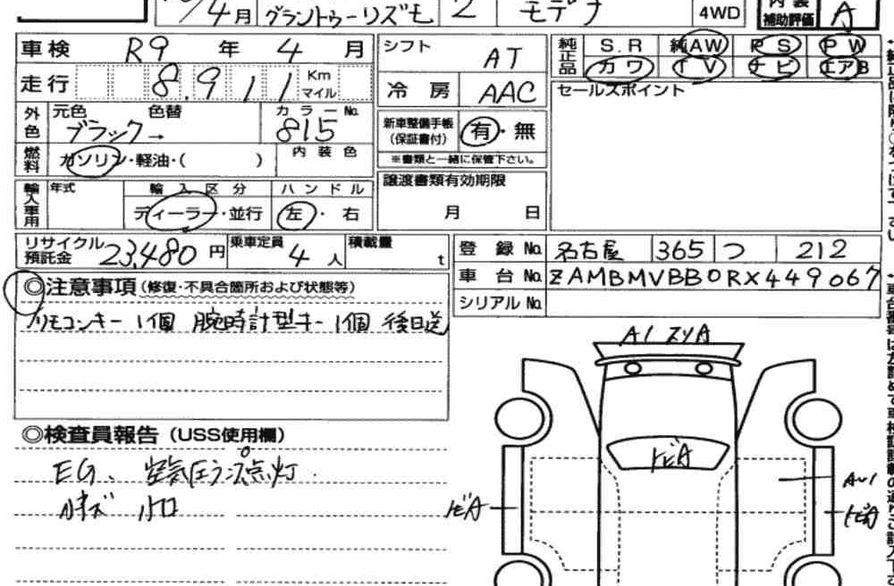 4月 グラントゥーリズモ 2 モデナ 4WD 内装補助評価 A
車検 R9年 4月 シフト AT 純正品 S.R 純AW P S P W
カワ T V ナビ エアB
走行 8,911 Km マイル 冷房 AAC セールスポイント
外色 元色 ブラック→ 色替 カラーNo. 815
新車整備手帳(保証書付) 有・無
※書類と一緒に保管下さい。
燃料 ガソリン・軽油・( ) 内装色
輸入車用 年式 輸入区分 ハンドル 譲渡書類有効期限
ディーラー・並行 左・右 月 日
リサイクル預託金 23,480円 乗車定員 4人 積載量 t
登録No. 名古屋 365 つ 212
車台No. ZAMBMVBB0RX449067
シリアルNo.
◎注意事項(修復・不具合箇所および状態等)
リモコンキー 1個 腕時計型キー 1個 後日送
A1 ZVA
◎検査員報告(USS使用欄)
EG、空気圧ランプ点灯.
トビA
小キズ 小凹
トビA
トビA